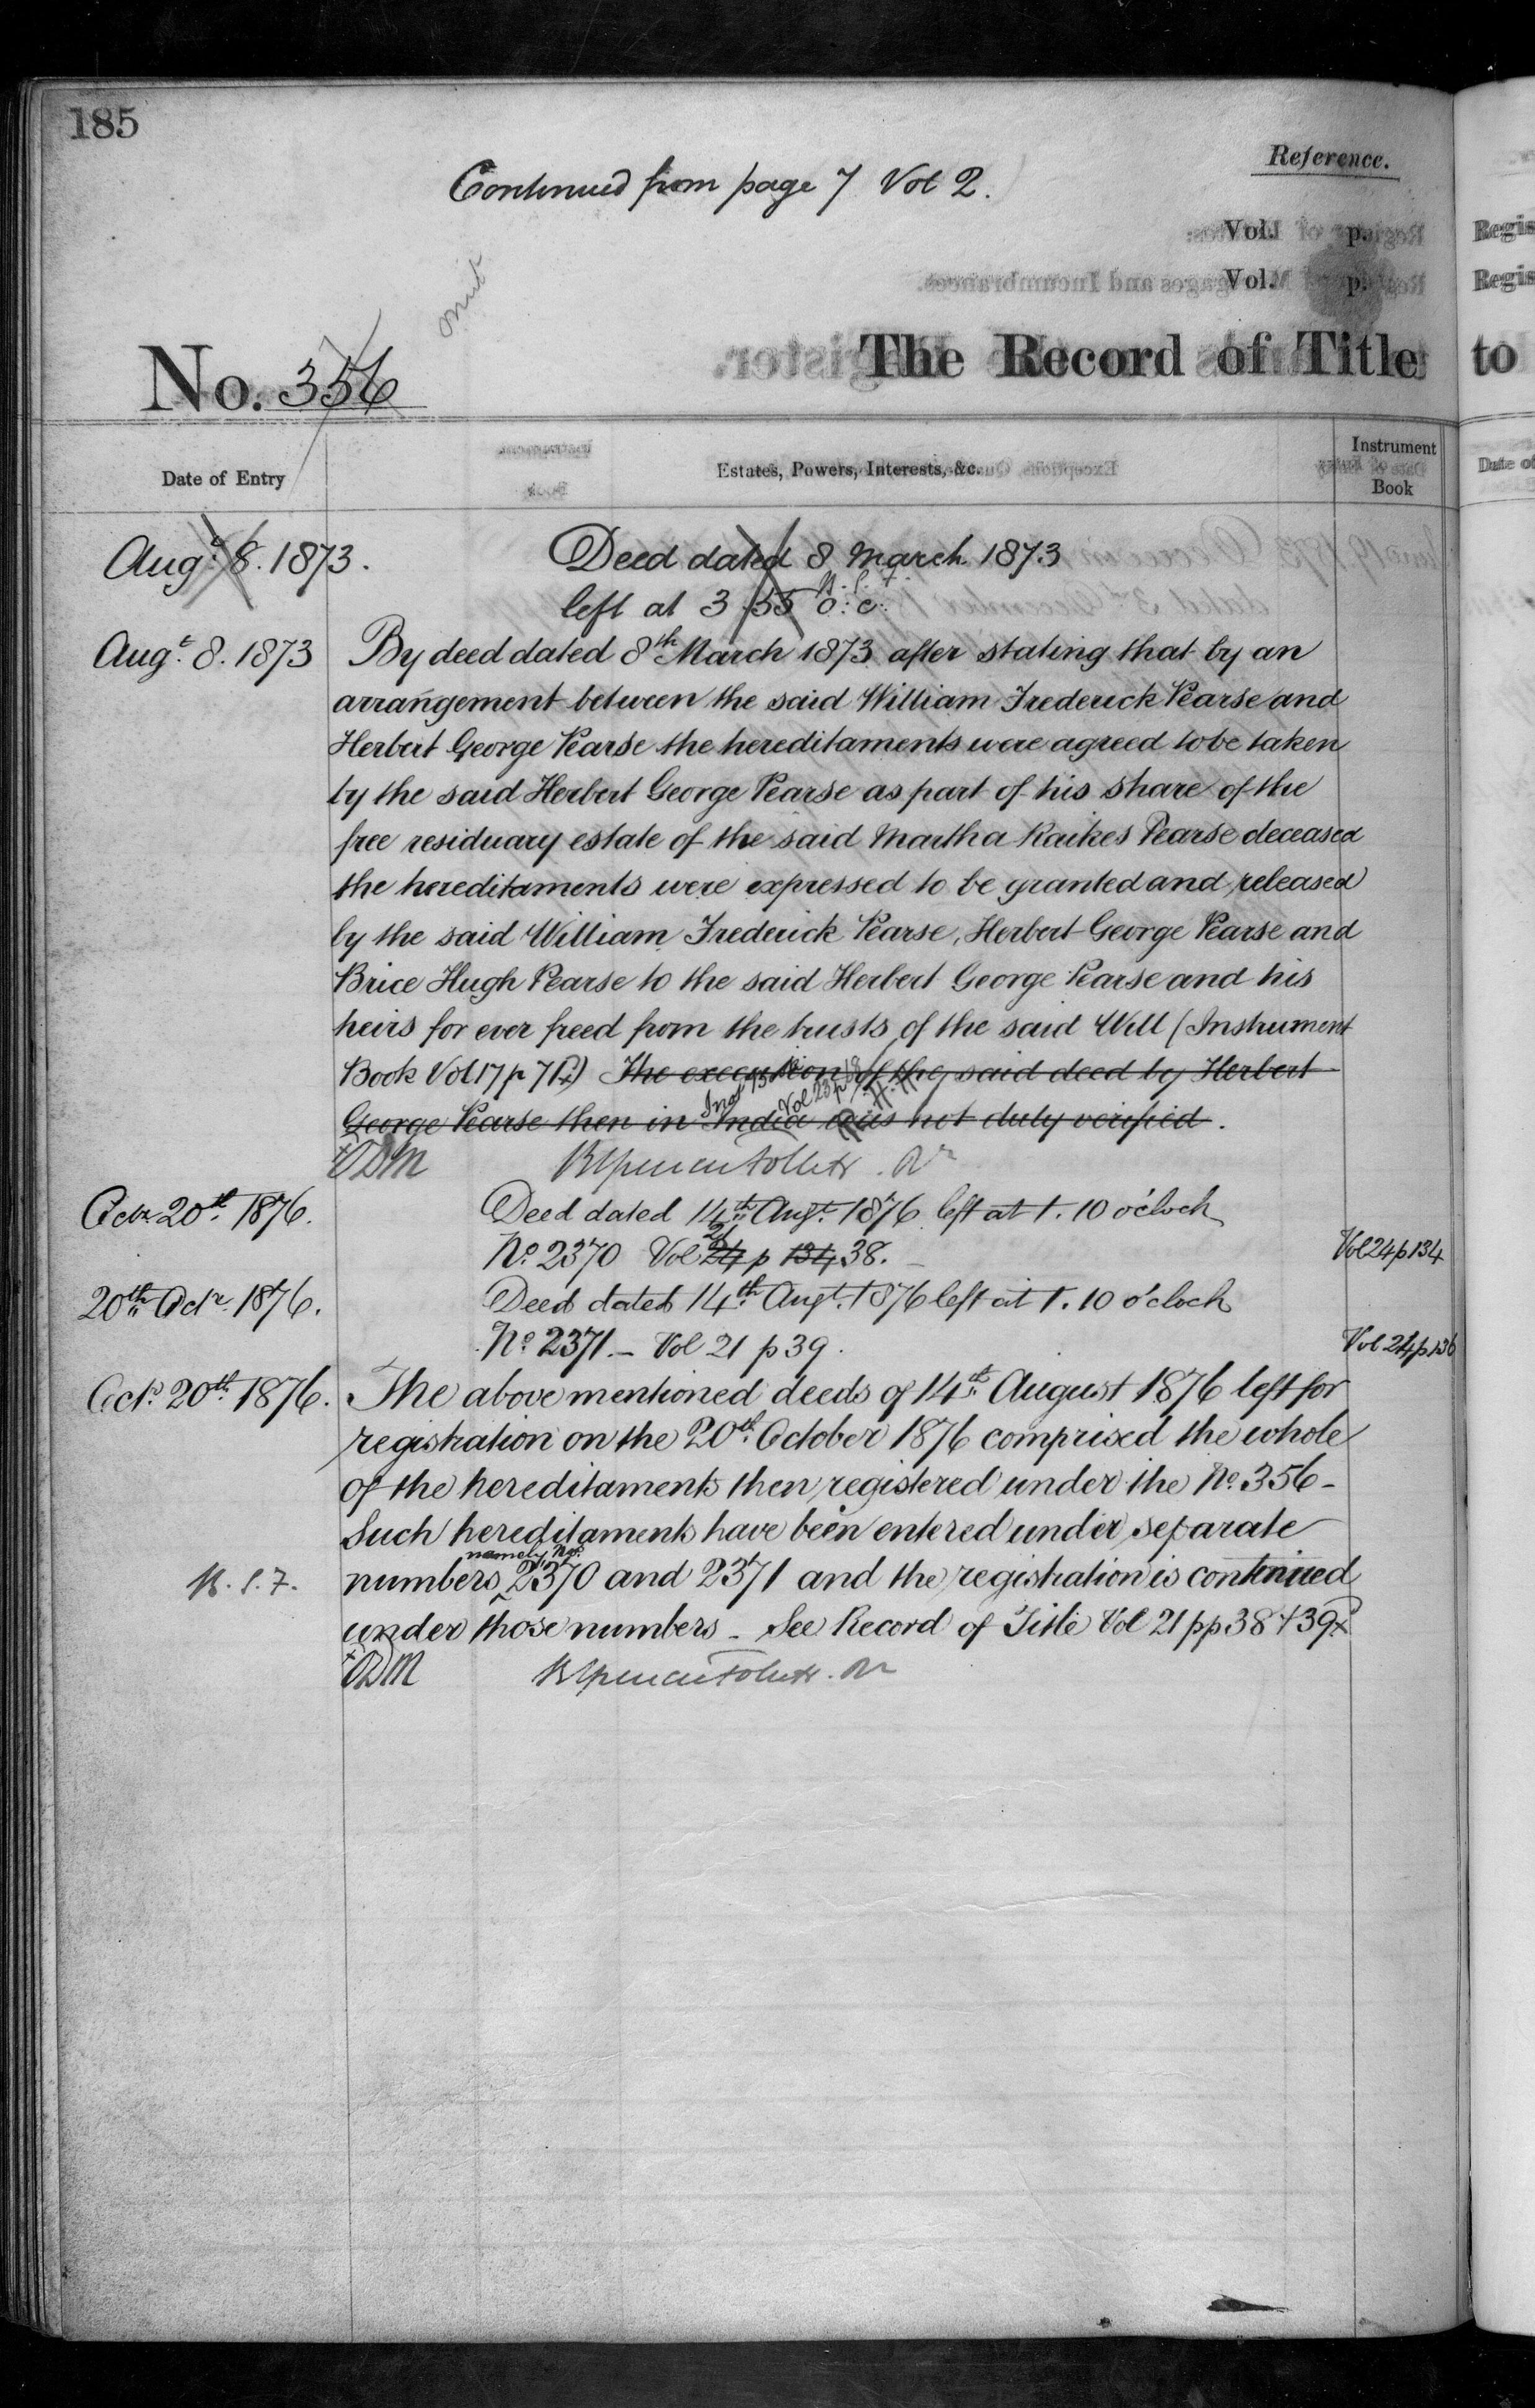 185
Reference.
Continued from page 7 Vol 2.
Vol. p.
Vol. p.
omit
The Record of Title
to
No. 356
Date of Entry
Estates, Powers, Interests, &c.
Instrument Book
Augt. 8. 1873.
Deed dated 8 March 1873
left at 3.55 o.c.
Augt. 8. 1873
By deed dated 8th March 1873 after stating that by an
arrangement between the said William Frederick Pearse and
Herbert George Pearse the hereditaments were agreed to be taken
by the said Herbert George Pearse as part of his share of the
free residuary estate of the said Martha Raikes Pearse deceased
the hereditaments were expressed to be granted and released
by the said William Frederick Pearse, Herbert George Pearse and
Brice Hugh Pearse to the said Herbert George Pearse and his
heirs for ever freed from the trusts of the said Will (Instrument
Book Vol 17 p 71) The execution of the said deed by Herbert
George Pearse then in India was not duly verified.
Octr. 20th. 1876.
Deed dated 14th Augt. 1876 left at 1.10 o'clock
No. 2370 Vol 24 21 p 134 38.
Vol 24 p 134
20th Octr. 1876.
Deed dated 14th. Augt. 1876 left at 1.10 o'clock
No. 2371. - Vol 21 p 39.
Vol 24 p 136
Octr. 20th. 1876.
The above mentioned deeds of 14th. August 1876 left for
registration on the 20th. October 1876 comprised the whole
of the hereditaments then registered under the No. 356 -
Such hereditaments have been entered under separate
numbers namely Nos. 2370 and 2371 and the registration is continued
under those numbers - See Record of Title Vol 21 pp 38 & 39